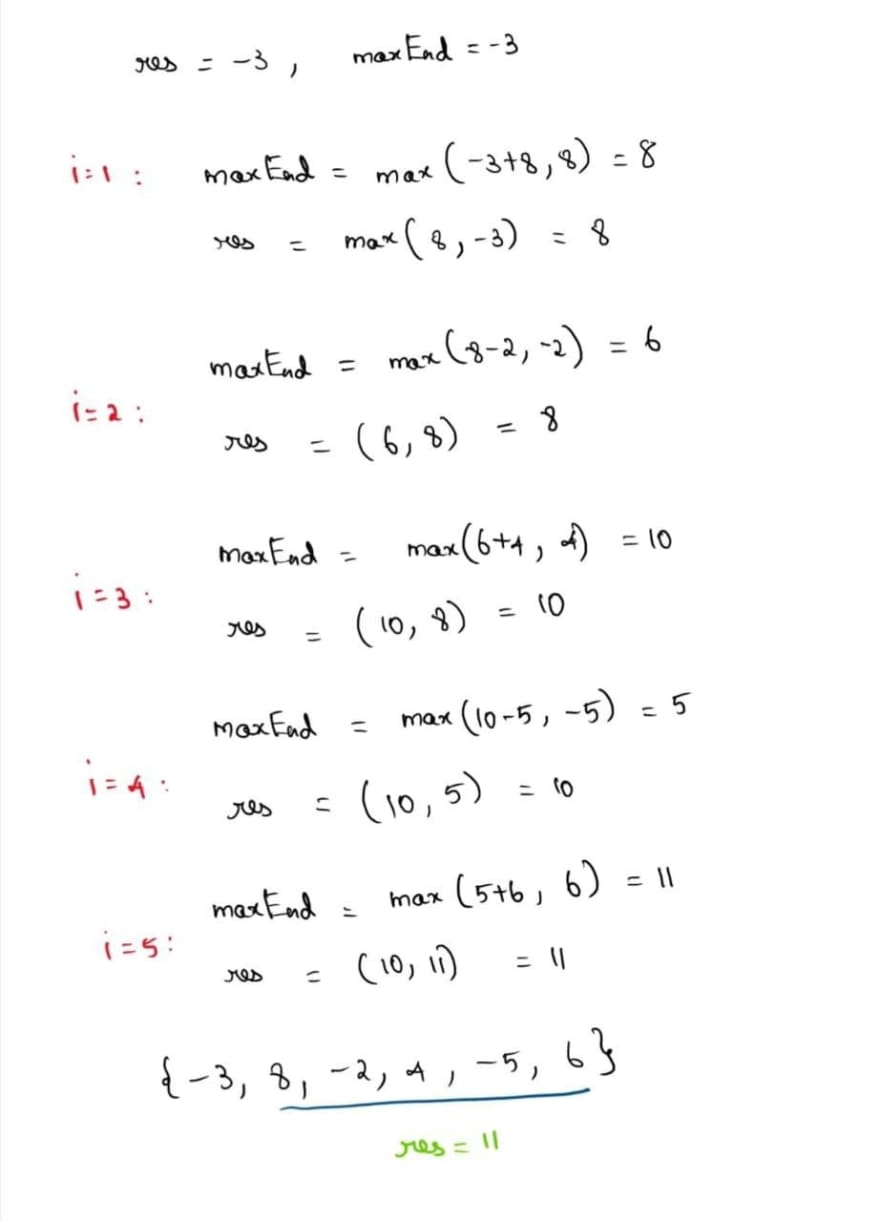 res = -3 , maxEnd = -3
i=1 : maxEnd = max (-3+8, 8) = 8
res = max (8, -3) = 8
maxEnd = max (8-2, -2) = 6
i=2 :
res = (6, 8) = 8
maxEnd = max(6+4 , 4) = 10
i=3 :
res = (10, 8) = 10
maxEnd = max (10-5, -5) = 5
i=4 :
res = (10, 5) = 10
maxEnd = max (5+6, 6) = 11
i=5 :
res = (10, 11) = 11
{-3, 8, -2, 4, -5, 6}
res = 11